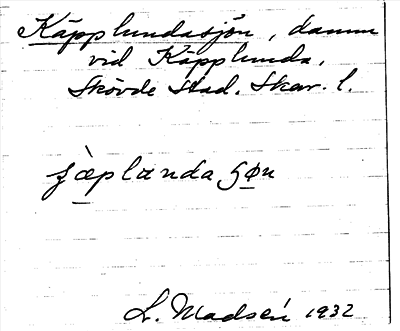 Käpplundasjön, damm
vid Käpplunda,
Skövde stad. Skar. l.
L. Madsén 1932